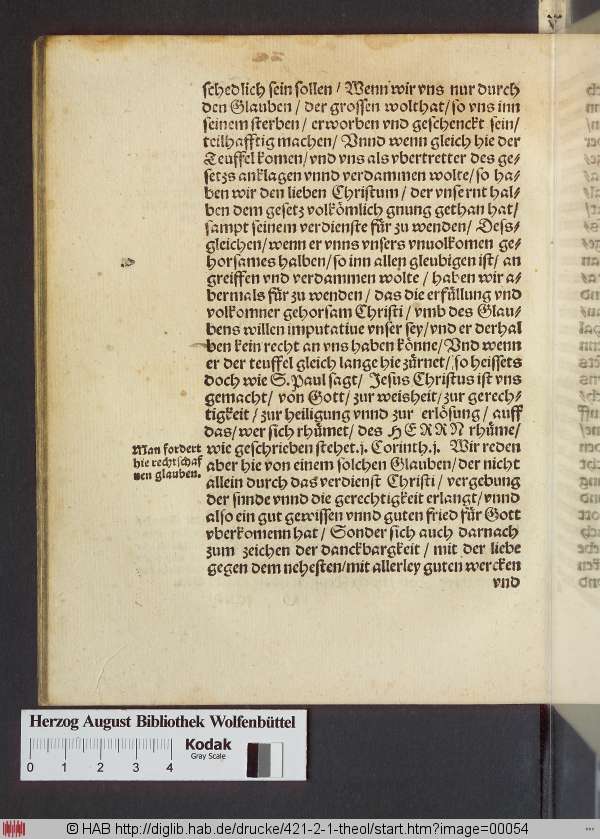 schedlich sein sollen / Wenn wir vns nur durch
den Glauben / der grossen wolthat / so vns inn
seinem sterben / erworben vnd geschenckt sein /
teilhafftig machen / Vnnd wenn gleich hie der
Teuffel komen / vnd vns als vbertretter des ge⸗
setzs anklagen vnnd verdammen wolte / so ha⸗
ben wir den lieben Christum / der vnsernt hal⸗
ben dem gesetz volkömlich gnung gethan hat /
sampt seinem verdienste für zu wenden / Dess⸗
gleichen / wenn er vnns vnsers vnuolkomen ge⸗
horsames halben / so inn allen gleubigen ist / an
greiffen vnd verdammen wolte / haben wir a⸗
bermals für zu wenden / das die erfüllung vnd
volkomner gehorsam Christi / vmb des Glau⸗
bens willen imputatiue vnser sey / vnd er derhal
ben kein recht an vns haben könne / Vnd wenn
er der teuffel gleich lange hie zürnet / so heissets
doch wie S. Paul sagt / Jesus Christus ist vns
gemacht / von Gott / zur weisheit / zur gerech⸗
tigkeit / zur heiligung vnnd zur erlösung / auff
das / wer sich rhümet / des HERRN rhüme /
wie geschrieben stehet .j. Corinth. j. Wir reden
aber hie von einem solchen Glauben / der nicht
allein durch das verdienst Christi / vergebung
der sünde vnnd die gerechtigkeit erlangt / vnnd
also ein gut gewissen vnnd guten fried für Gott
vberkomenn hat / Sonder sich auch darnach
zum zeichen der danckbargkeit / mit der liebe
gegen dem nehesten / mit allerley guten wercken
vnd
Man fordert
hie rechtschaf
nen glauben.
Herzog August Bibliothek Wolfenbüttel
0 1 2 3 4
Kodak
Gray Scale
© HAB http://diglib.hab.de/drucke/421-2-1-theol/start.htm?image=00054